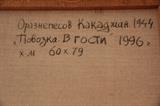 Оразнепесов Какаджан 1944
„Повозка. В гости" 1996г
х.м 60х79